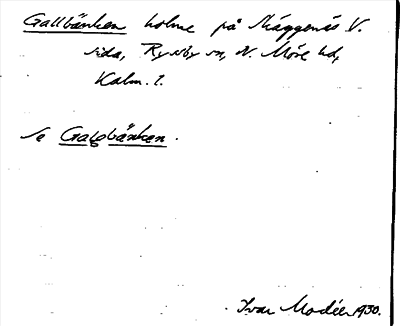 Gallbänken holme på Skäggenäs V.
sida, Ryssby sn, N. Möre hd,
Kalm. l.
Se Galgbänken.
Ivar Modéer 1930.